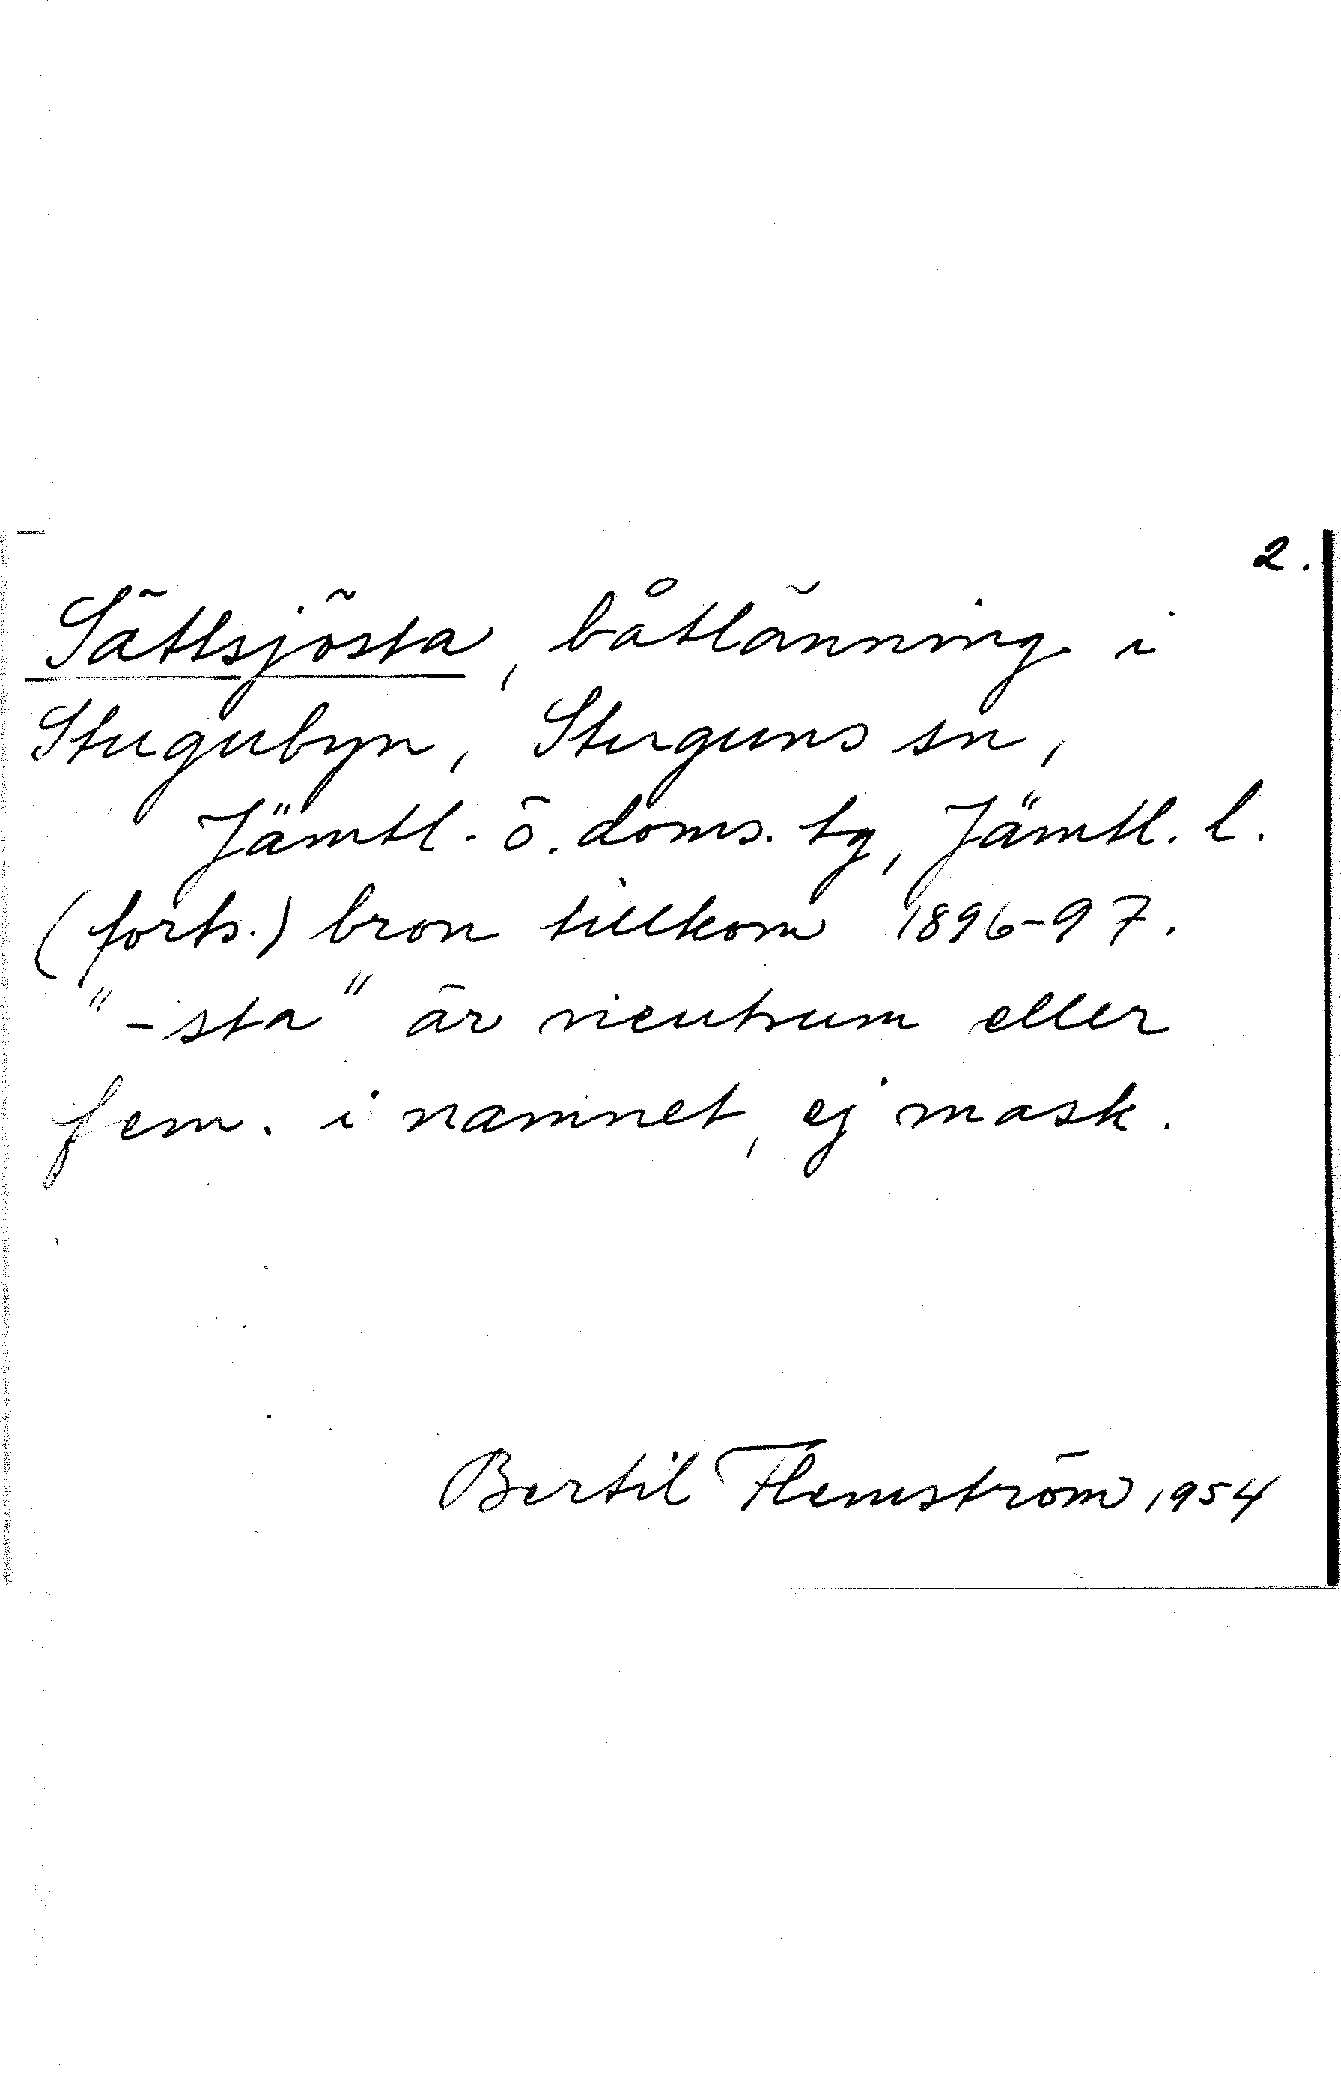 2.
Sätlsjösta, båtlänning i
Stugubyn, Stuguns sn,
Jämtl. ö. doms. tg, Jämtl. l.
(forts.) bron tillkom 1896-97.
"-sta" är neutrum eller
fem. i namnet, ej mask.
Bertil Flemström 1954